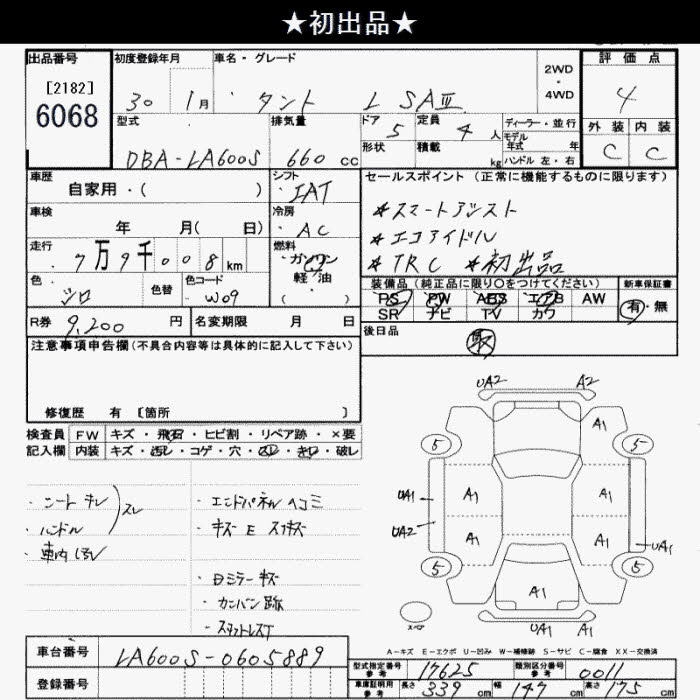 ★初出品★
出品番号 初度登録年月 車名・グレード 2WD・4WD 評価点
[2182]
6068
30 1月 タント L SAⅢ 4
型式 排気量 ドア 5 定員 4人 ディーラー・並行 外装 内装
形状 積載 kg モデル年式 年式 ハンドル 左・右
DBA-LA600S 660cc C C
車歴 シフト セールスポイント(正常に機能するものに限ります)
自家用・( ) IAT
車検 冷房 *スマートアシスト
年 月( 日) AC *エコアイドル
走行 燃料 *TRC *初出品
7万9千008km ガソリン
軽・油
( )
色 色替 色コード 装備品(純正品に限り○をつけてください) 新車保証書
シロ W09 PS PW ABS エアB AW 有・無
SR ナビ TV カワ
R券 9,200円 名変期限 月 日 後日品
注意事項申告欄(不具合内容等は具体的に記入して下さい) 取
修復歴 有 [箇所 ]
検査員 FW キズ・飛石・ヒビ割・リペア跡・×要
記入欄 内装 キズ・汚レ・コゲ・穴・スレ・キレ・破レ
・シート キレ
・ハンドル スレ
・車内
・エンドパネル ヘコミ
・キズ E スリキズ
・日ミラー キズ
・カンバン跡
UA2 A2
A1
5 5
UA1 A1 A1
UA2 A1 A1 UA1
5 5
A1
スペア UA1 A1
A-キズ E-エクボ U-凹み W-補修跡 S-サビ C-腐食 XX-交換済
車台番号 LA600S-0605889
登録番号
型式指定番号 参考 17625 類別区分番号 参考 0011
車庫証明用 参考 長さ 339cm 幅 147cm 高さ 175cm